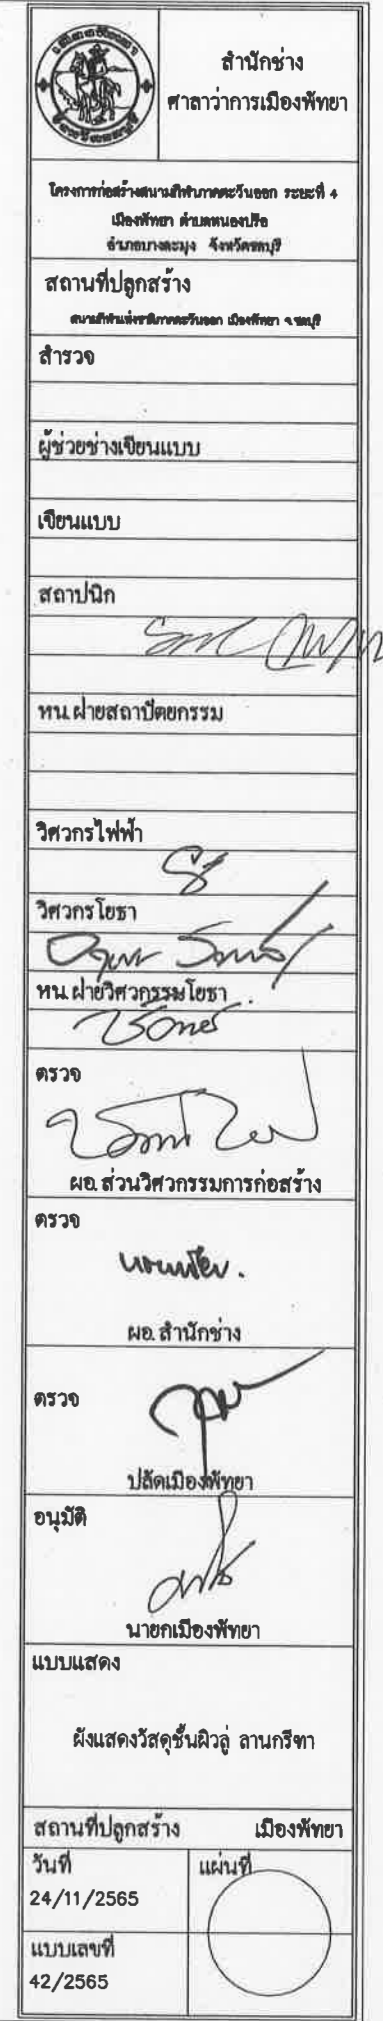 สำนักช่าง
ศาลาว่าการเมืองพัทยา
โครงการก่อสร้างสนามกีฬาภาคตะวันออก ระยะที่ 4
เมืองพัทยา ตำบลหนองปรือ
อำเภอบางละมุง จังหวัดชลบุรี
สถานที่ปลูกสร้าง
สนามกีฬาแห่งชาติภาคตะวันออก เมืองพัทยา จ.ชลบุรี
สำรวจ
ผู้ช่วยช่างเขียนแบบ
เขียนแบบ
สถาปนิก
หน.ฝ่ายสถาปัตยกรรม
วิศวกรไฟฟ้า
วิศวกรโยธา
หน.ฝ่ายวิศวกรรมโยธา
ตรวจ
ผอ.ส่วนวิศวกรรมการก่อสร้าง
ตรวจ
ผอ.สำนักช่าง
ตรวจ
ปลัดเมืองพัทยา
อนุมัติ
นายกเมืองพัทยา
แบบแสดง
ผังแสดงวัสดุชั้นผิวลู่ ลานกรีฑา
สถานที่ปลูกสร้าง เมืองพัทยา
วันที่ แผ่นที่
24/11/2565
แบบเลขที่
42/2565